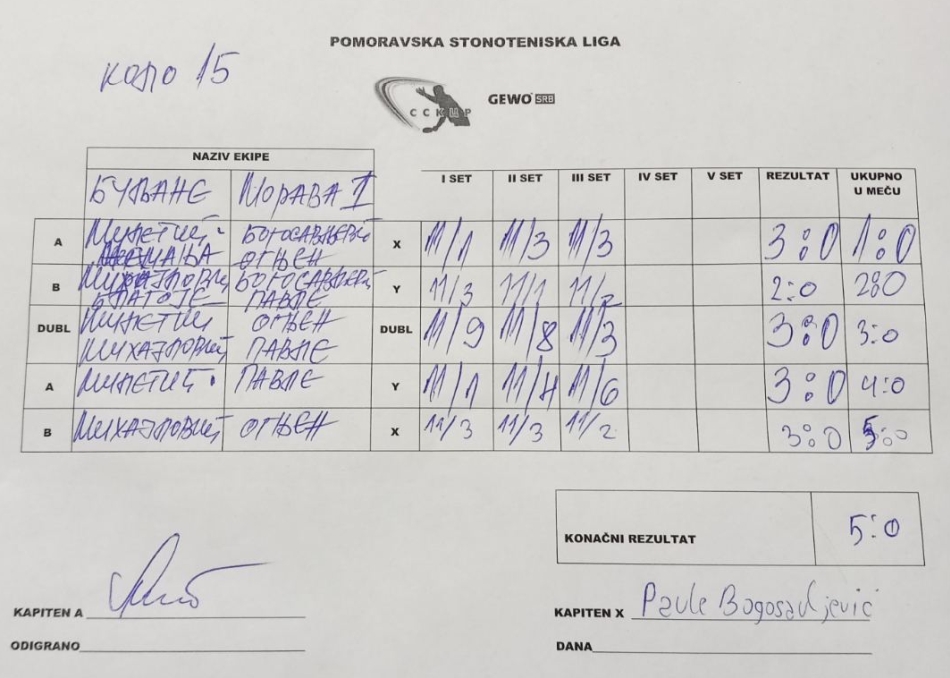 POMORAVSKA STONOTENISKA LIGA
коло 15
ССКUР GEWO SRB
NAZIV EKIPE
I SET II SET III SET IV SET V SET REZULTAT UKUPNO U MEČU
БУЉАНЕ МОРАВА II
A МИЛЕТИЋ НЕМАЊА БОГОСАВЉЕВИЋ ОГЊЕН X 11/1 11/3 11/3 3:0 1:0
B МИХАЈЛОВИЋ БЛАГОЈЕ БОГОСАВЉЕВИЋ ПАВЛЕ Y 11/3 11/1 11/2 2:0 2:0
DUBL МИЛЕТИЋ ОГЊЕН DUBL 11/9 11/8 11/3 3:0 3:0
МИХАЈЛОВИЋ ПАВЛЕ
A МИЛЕТИЋ ПАВЛЕ Y 11/1 11/4 11/6 3:0 4:0
B МИХАЈЛОВИЋ ОГЊЕН X 11/3 11/3 11/2 3:0 5:0
KONAČNI REZULTAT 5:0
KAPITEN A
KAPITEN X Pavle Bogosavljević
ODIGRANO
DANA